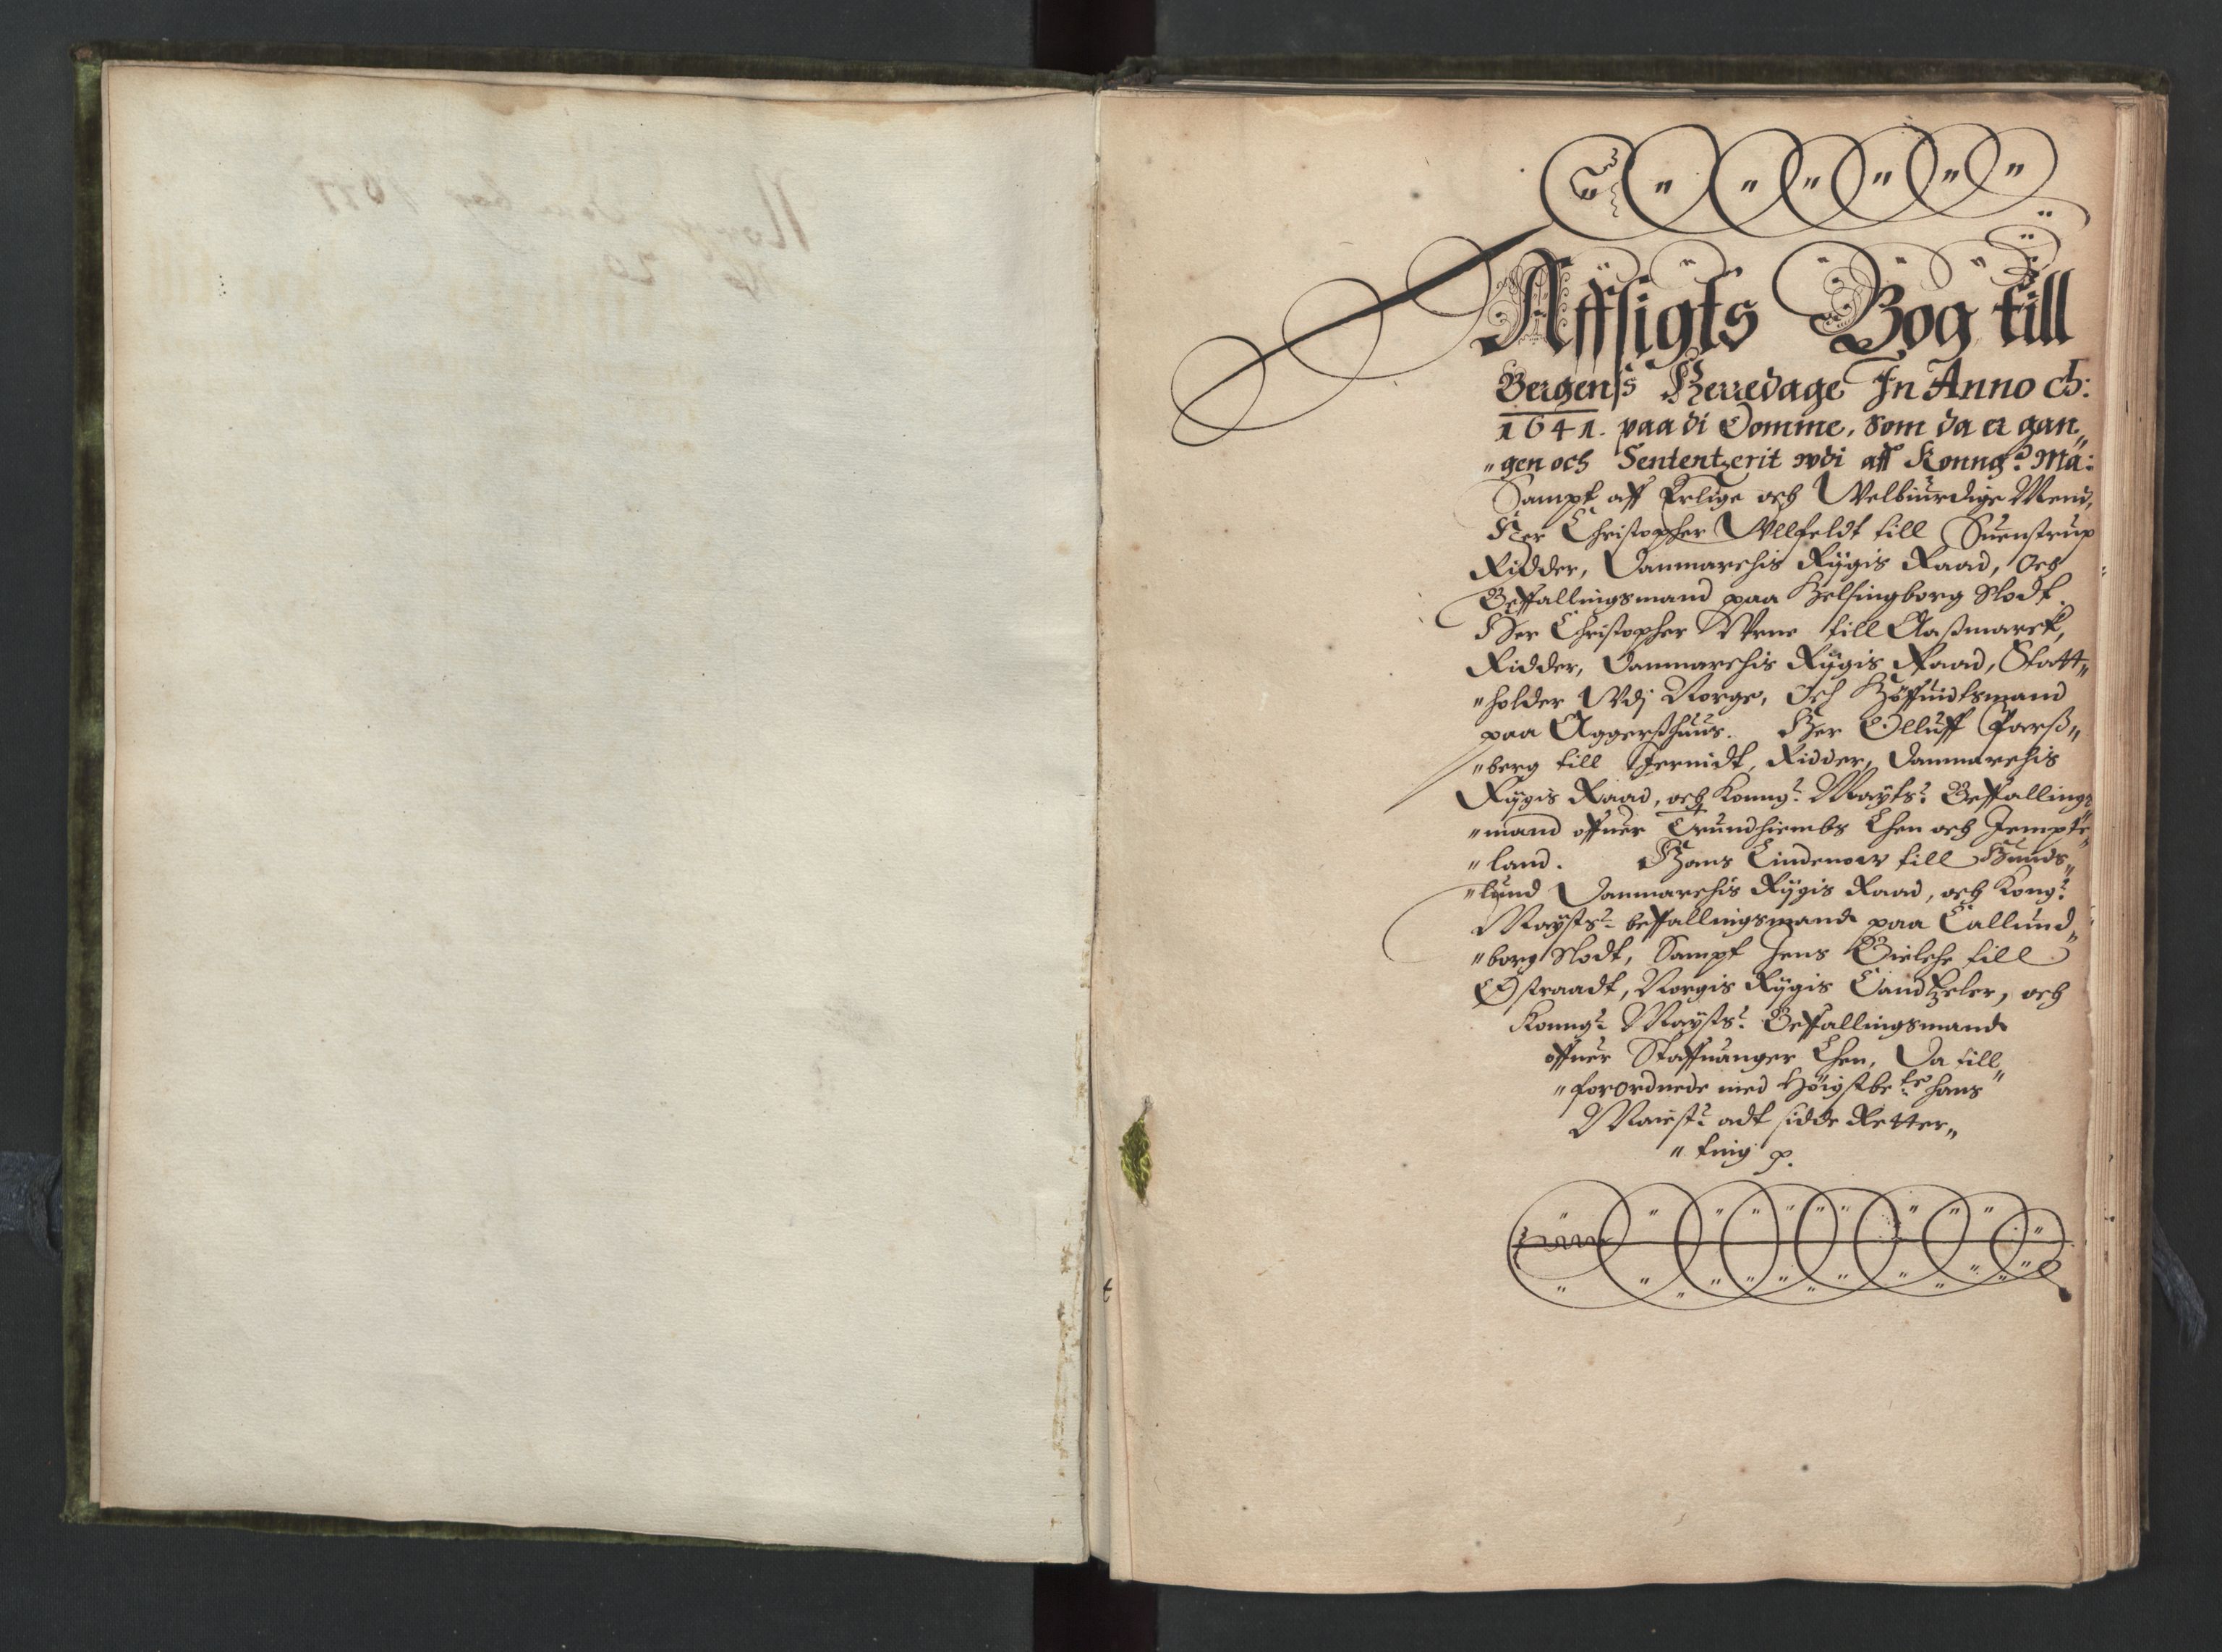 Affsigts Bog till
Bergenß Herredage In Anno ch:
1641. paa di Domme, som da er gan„
„gen och Sententzerit wdi aff Konng: Ma:
Sampt aff Erlige och Welbiurdige Mend,
Her Christopher Wllfeldt till Suenstrup
Ridder, Danmarchis Rÿgis Raad, Och
Beffallingsmand paa Helsingborg Slodt.
Her Christopher Wrne till Aaßmarck,
Ridder, Danmarchis Rÿgis Raad, Statt„
„holder Wdj Norge, Och Höffuidtsmand
paa Aggerßhuus. Her Olluff Parß„
„berg till Jernidt, Ridder, Danmarchis
Rÿgis Raad, och Konng: Maÿts: Beffallings
„mand offuer Trundhiembs Lhen och Jempte„
„land. Hans Lindenow till Hunds„
„lund Danmarchis Rÿgis Raad, och Kong:
Maÿsts: beffallingsmand paa Callund„
„borg Slodt, Sampt Jens Bielche till
Østraadt, Norgis Rÿgis Candtzeler, och
Konng: Maÿsts: Beffallingsmand
offuer Staffuanger Lhen, Da till„
„forordnede med Höigstbe:te hans
Maiest: adt sidde Retter„
„ting p.